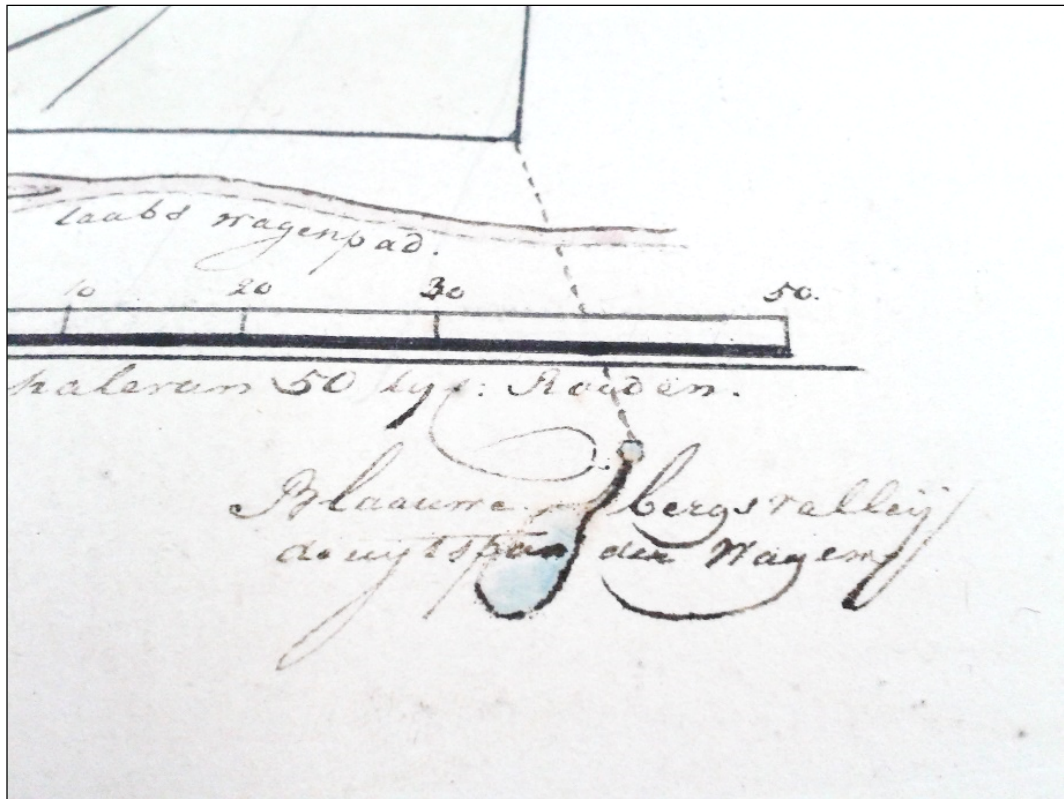 laabs wagenpad.
10 20 30 50.
halevan 50 Roeden.
Blaauwe bergsvalleij
de uytspan der Wagens